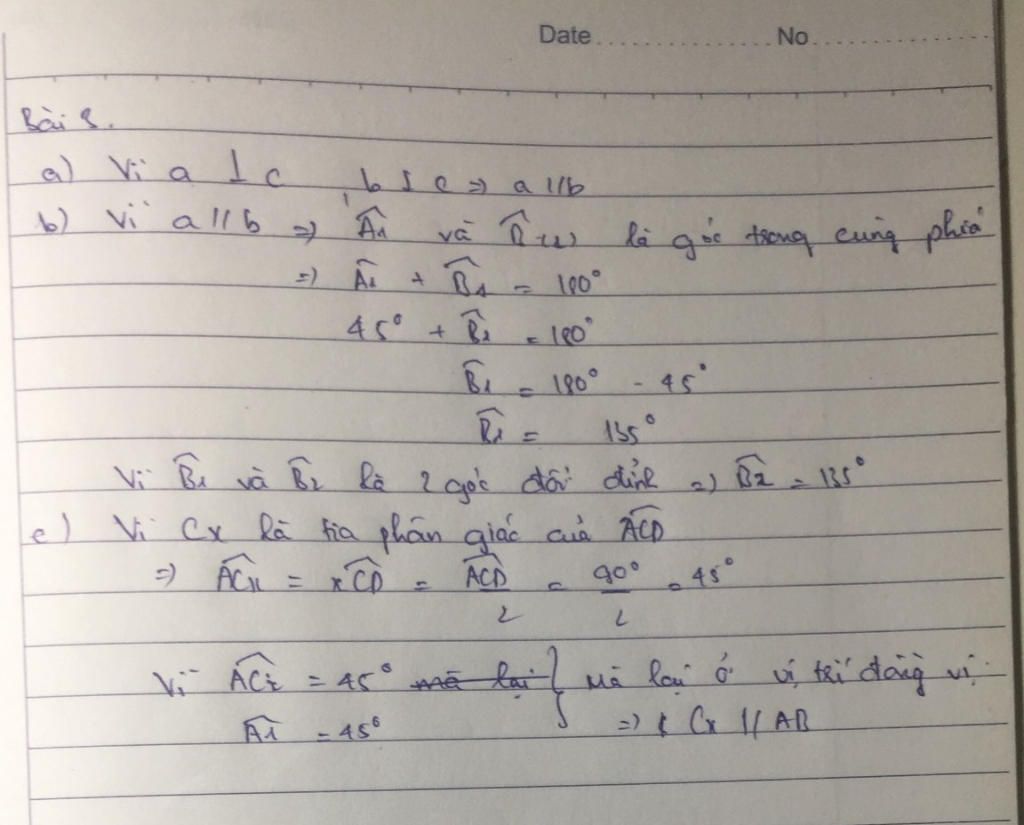 Date.................No......................
Bài 3.
a) Vì a ⊥ c , b ⊥ c => a // b
b) Vì a // b => Â₁ và B̂₁ là góc trong cùng phía
=> Â₁ + B̂₁ = 180°
45° + B̂₁ = 180°
B̂₁ = 180° - 45°
B̂₁ = 135°
Vì B̂₁ và B̂₂ là 2 góc đối đỉnh => B̂₂ = 135°
c) Vì Cx là tia phân giác của ACD
=> ACx = xCD = ACD/2 = 90°/2 = 45°
Vì ACx = 45° mà lại } Mà lại ở vị trí đồng vị
Â₁ = 45° => Cx // AB